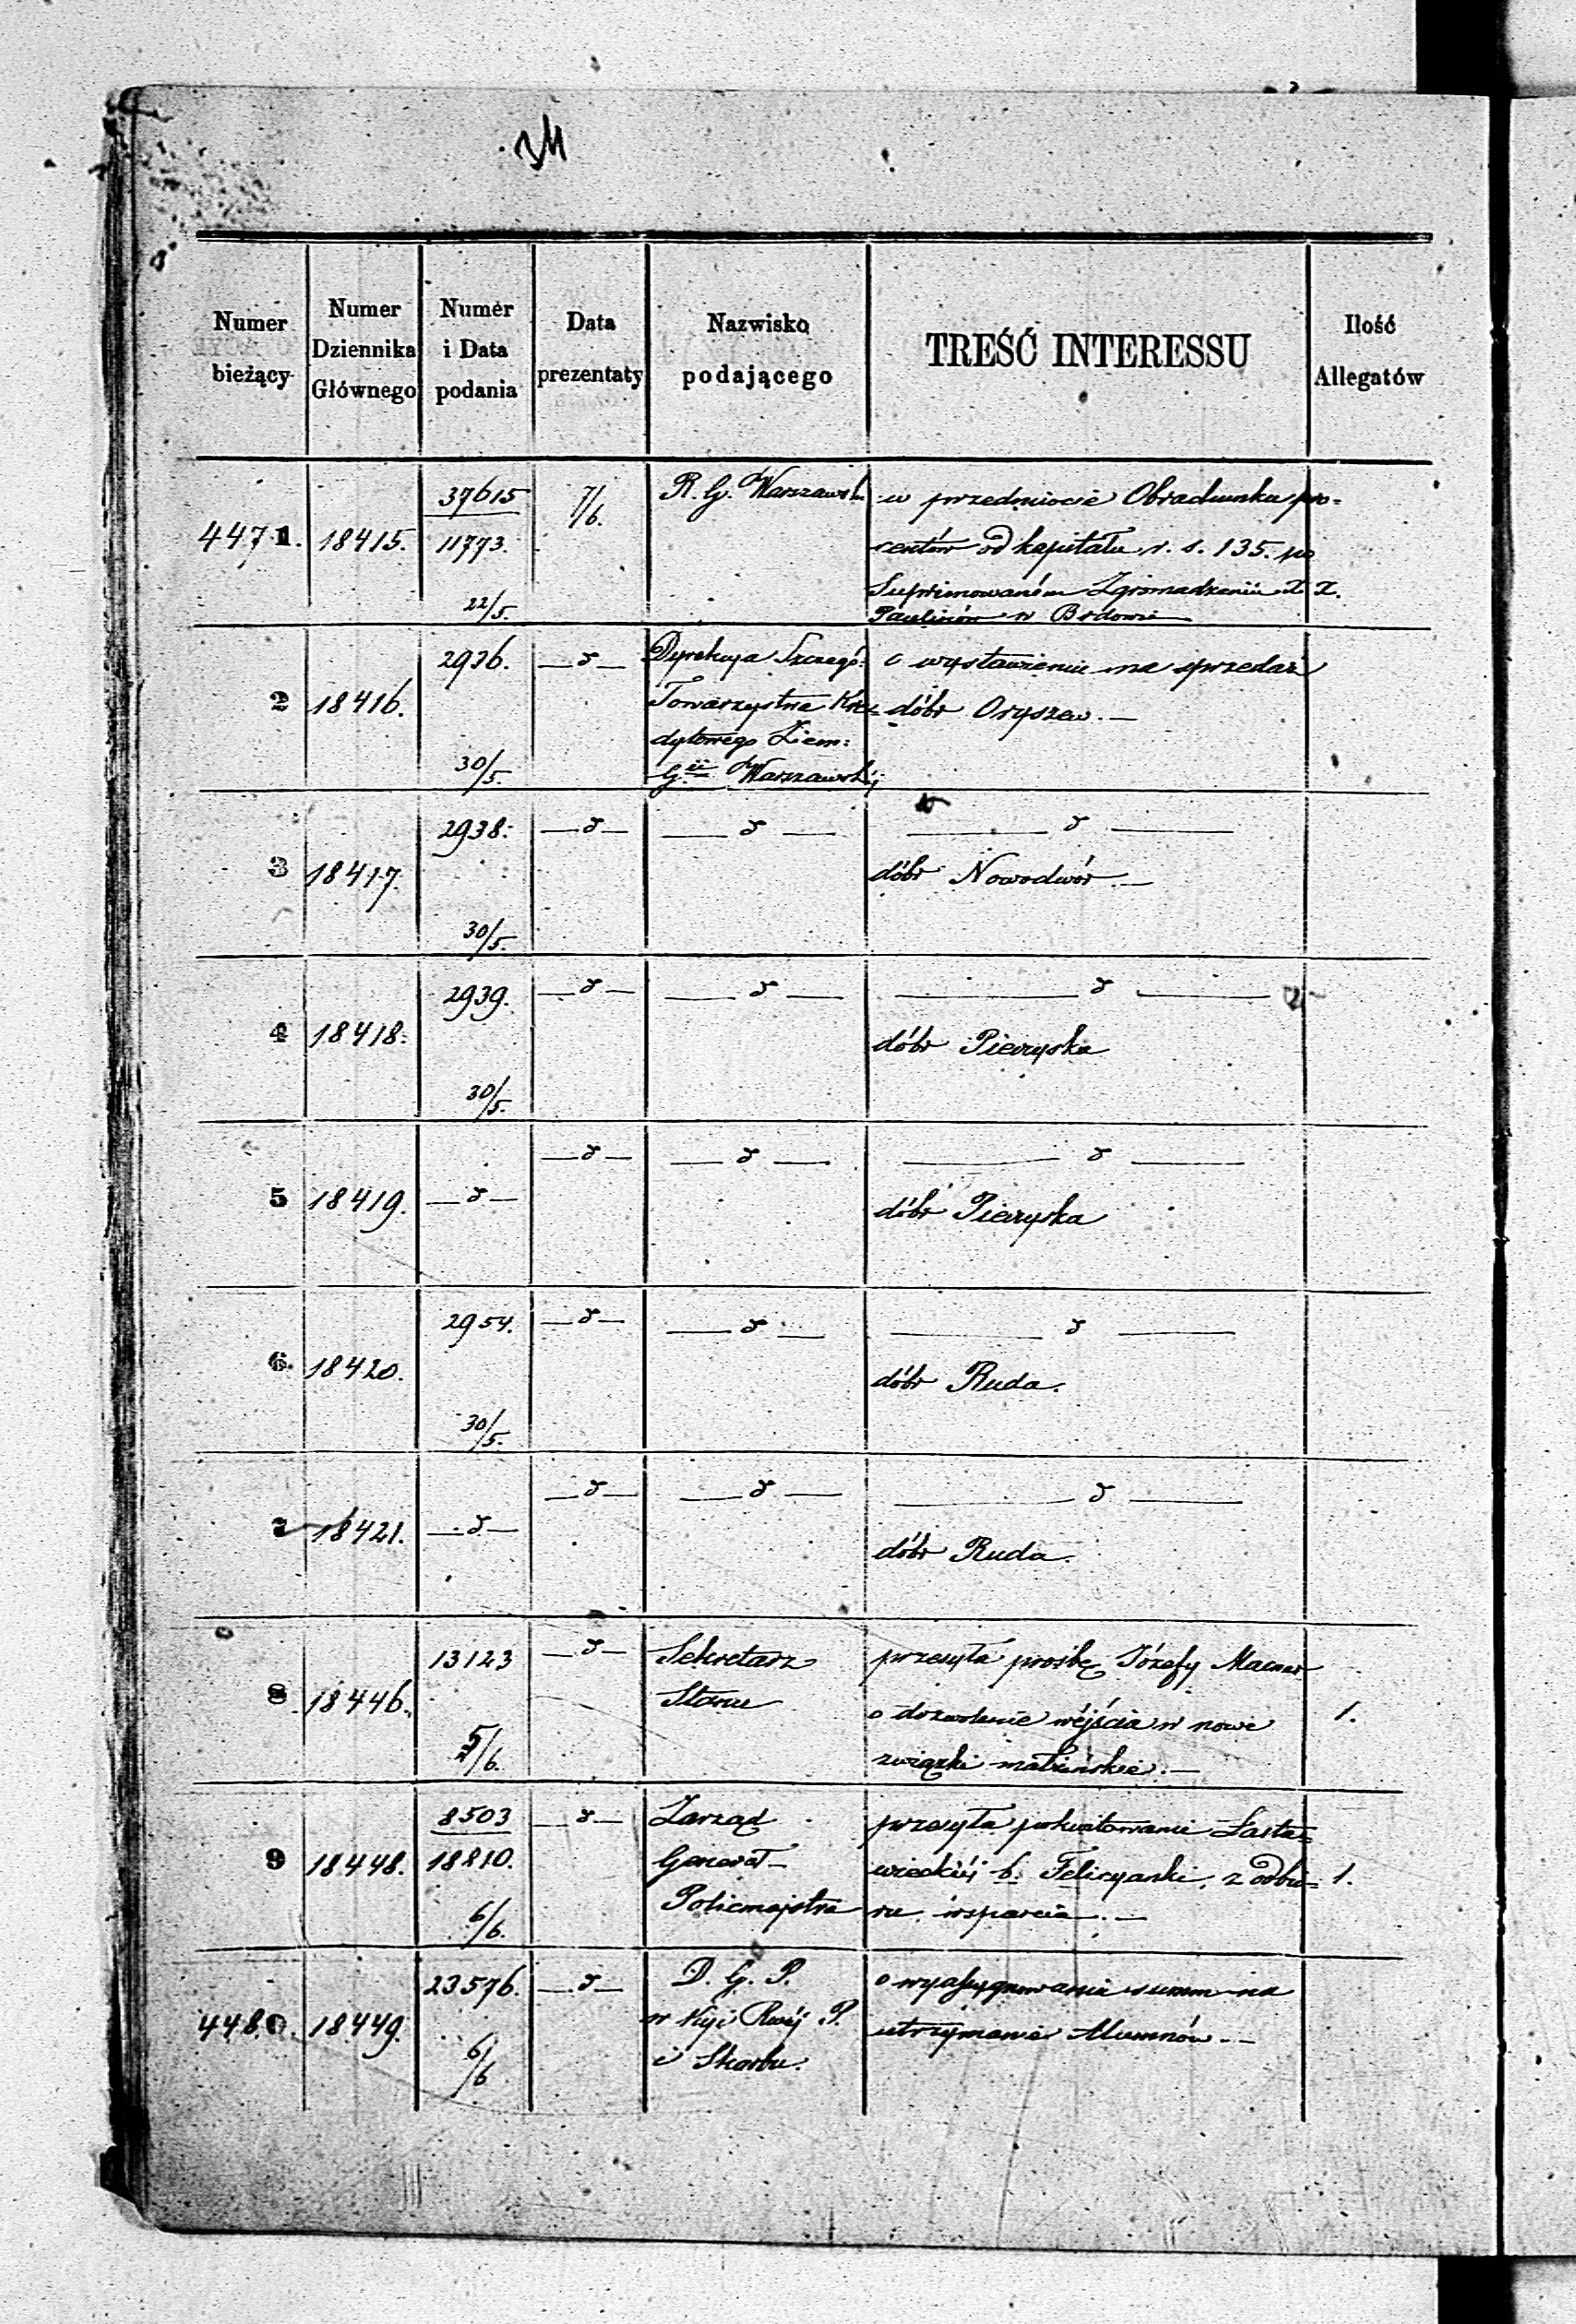 34
Numer bieżący
Numer Dziennika Głównego
Numer i Data podania
Data prezentaty
Nazwisko podającego
TREŚĆ INTERESSU
Ilość Allegatów
4471. 18415. 37615 7/6. R. G. Warszawsk. w przedmiocie Obrachunku pro=
11773. centów od kapitału r. s. 135. po
22/5. Suprimowaném Zgromadzeniu X X.
Paulinów w Brdowie
2 18416. 2936. —d— Dyrekcya Szczegó: o wystawieniu na sprzedaż
Towarzystwa Kre= dóbr Oryszew. —
dytowego Ziem:
30/5. Gii Warszawskiéj
3 18417. 2938. —d— —d— —d—
dóbr Nowodwór. —
30/5.
4 18418. 2939. —d— —d— —d—
dóbr Piewyska
30/5.
5 18419. —d— —d— —d— —d—
dóbr Piewyska
6. 18420. 2954. —d— —d— —d—
dóbr Ruda.
30/5.
7 18421. —d— —d— —d— —d—
dóbr Ruda.
8 18446. 13123 —d— Sekretarz przesyła prośbę Józefy
Stanu o dozwolenie wejścia w nowe 1.
5/6. związki małżeńskie. —
9 18448. 8503 —d— Zarząd przesyła pokwitowanie Łasta=
18810. Generał= wieckiéj b. Felicyanki, z odbio= 1.
6/6. Policmajstra ru wsparcia. —
4480. 18449. 23576. —d— D. G. P. o wyasygnowanie summ na
w Kyi Rwéj P. utrzymanie Alumnów. —
6/6 i Skarbu.